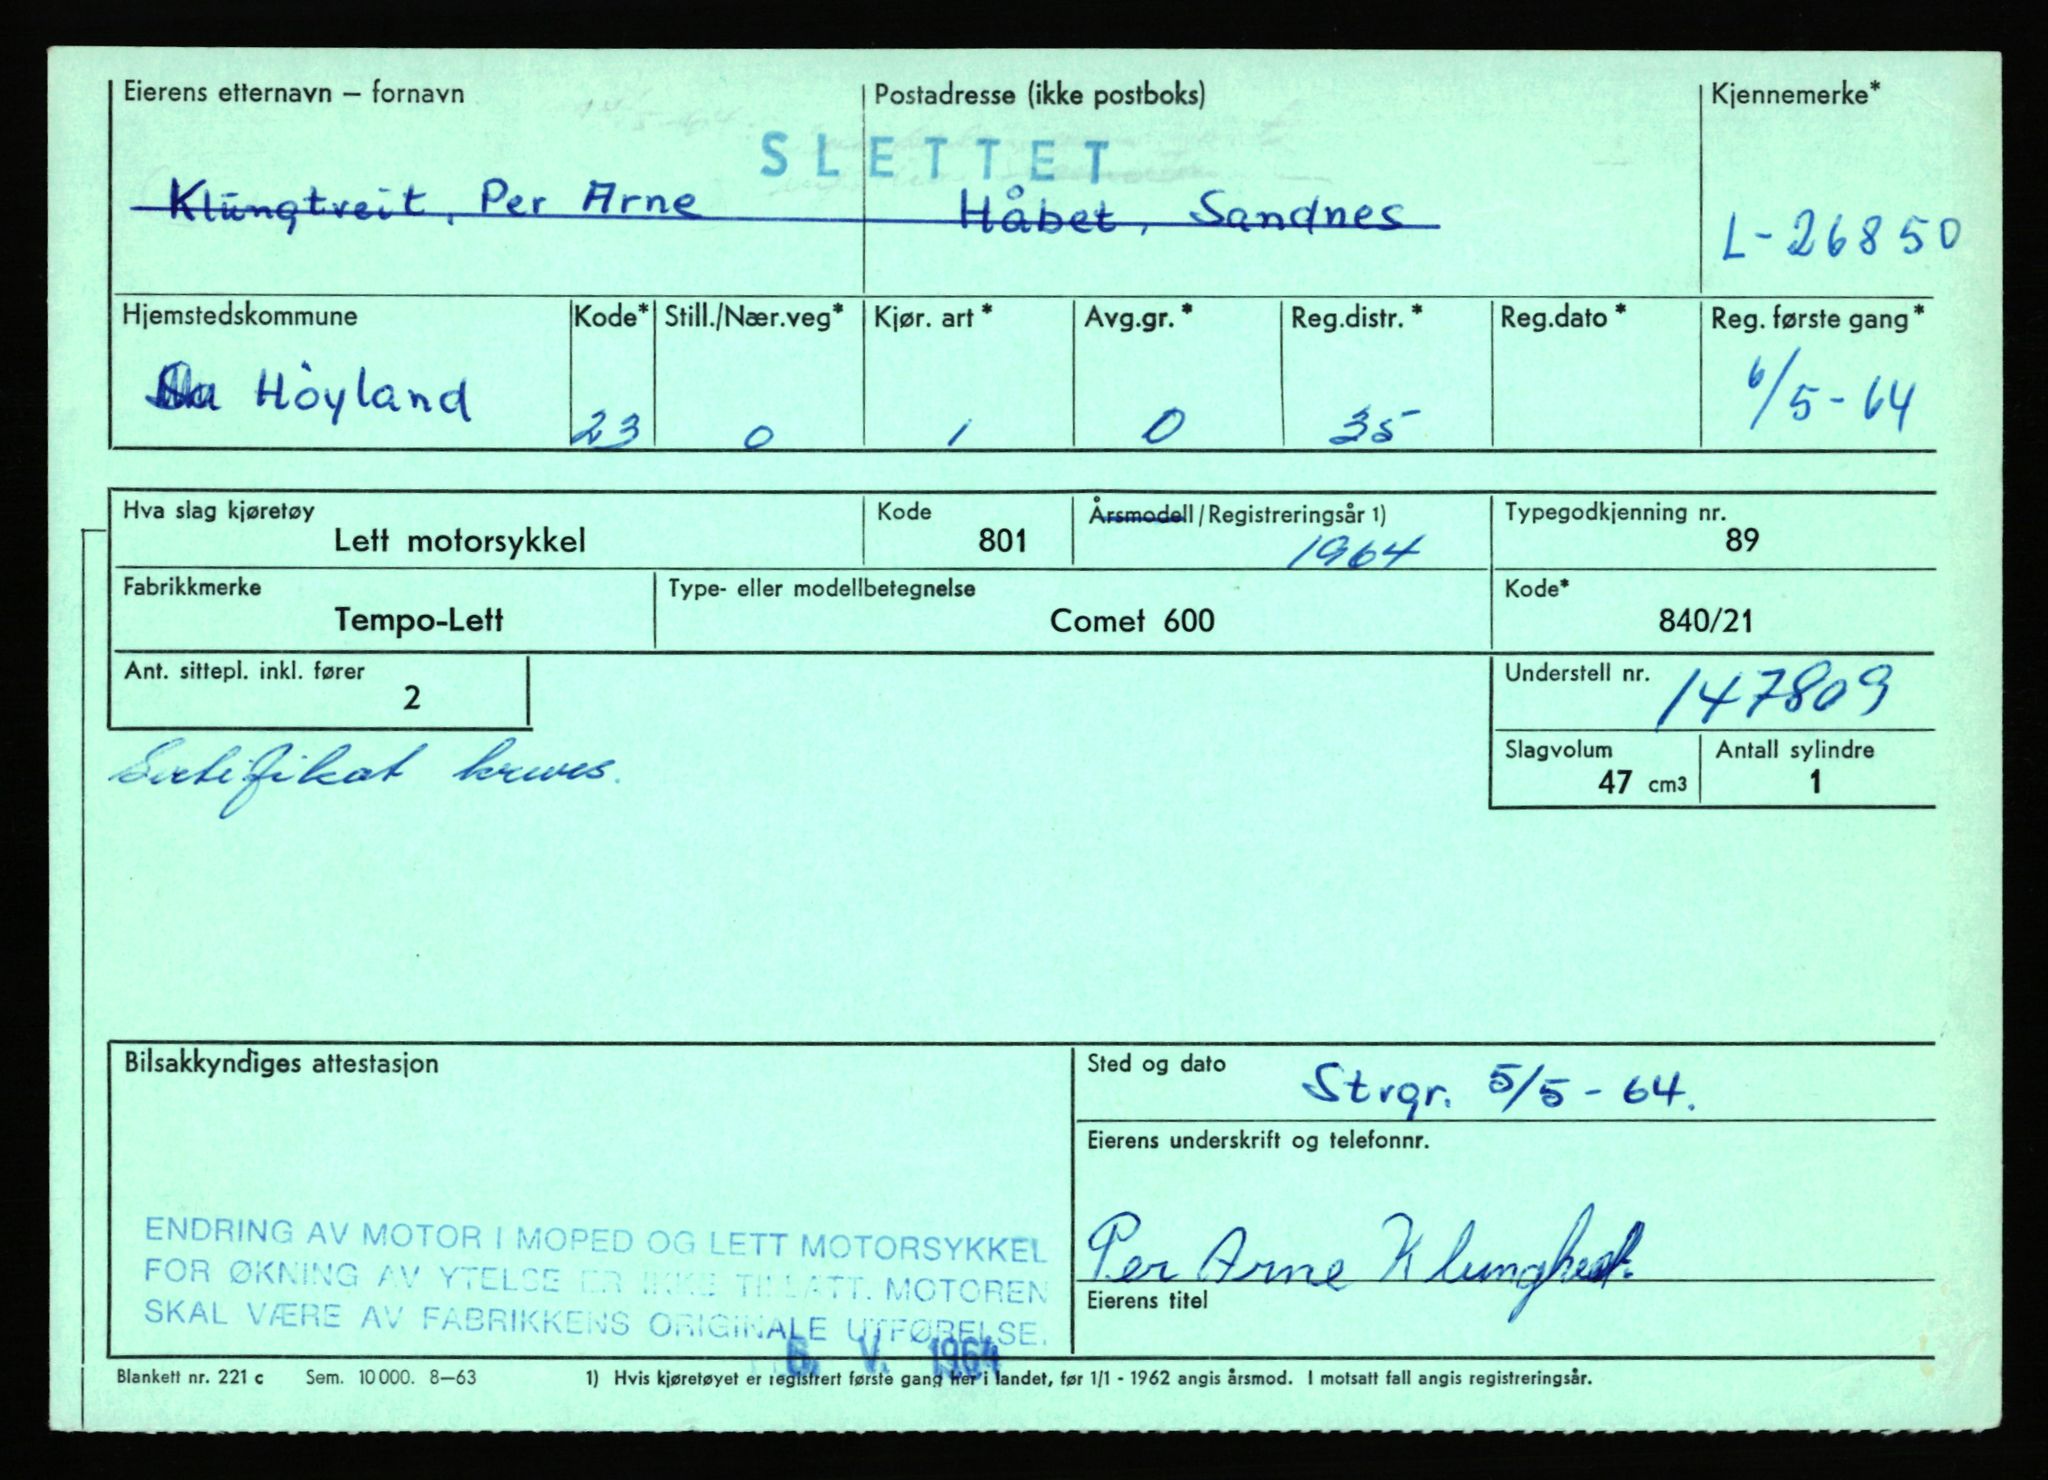 Eierens etternavn – fornavn
Postadresse (ikke postboks)
Kjennemerke*
SLETTET
Klungtveit, Per Arne
Håbet, Sandnes
L-26850
Hjemstedskommune
Kode*
Still./Nær.veg*
Kjør. art*
Avg.gr.*
Reg.distr.*
Reg.dato*
Reg. første gang*
Høyland
23
0
1
0
35
6/5-64
Hva slag kjøretøy
Lett motorsykkel
Kode
801
Årsmodell/Registreringsår 1)
1964
Typegodkjenning nr.
89
Fabrikkmerke
Tempo-Lett
Type- eller modellbetegnelse
Comet 600
Kode*
840/21
Ant. sittepl. inkl. fører
2
Understell nr.
147809
Sertifikat kreves.
Slagvolum
47 cm3
Antall sylindre
1
Bilsakkyndiges attestasjon
Sted og dato
Strgr. 5/5-64.
Eierens underskrift og telefonnr.
Per Arne
Eierens titel
ENDRING AV MOTOR I MOPED OG LETT MOTORSYKKEL
FOR ØKNING AV YTELSE ER IKKE TILLATT. MOTOREN
SKAL VÆRE AV FABRIKKENS ORIGINALE UTFØRELSE.
6. V. 1964
Blankett nr. 221 c Sem. 10000. 8–63
1) Hvis kjøretøyet er registrert første gang her i landet, før 1/1 - 1962 angis årsmod. I motsatt fall angis registreringsår.